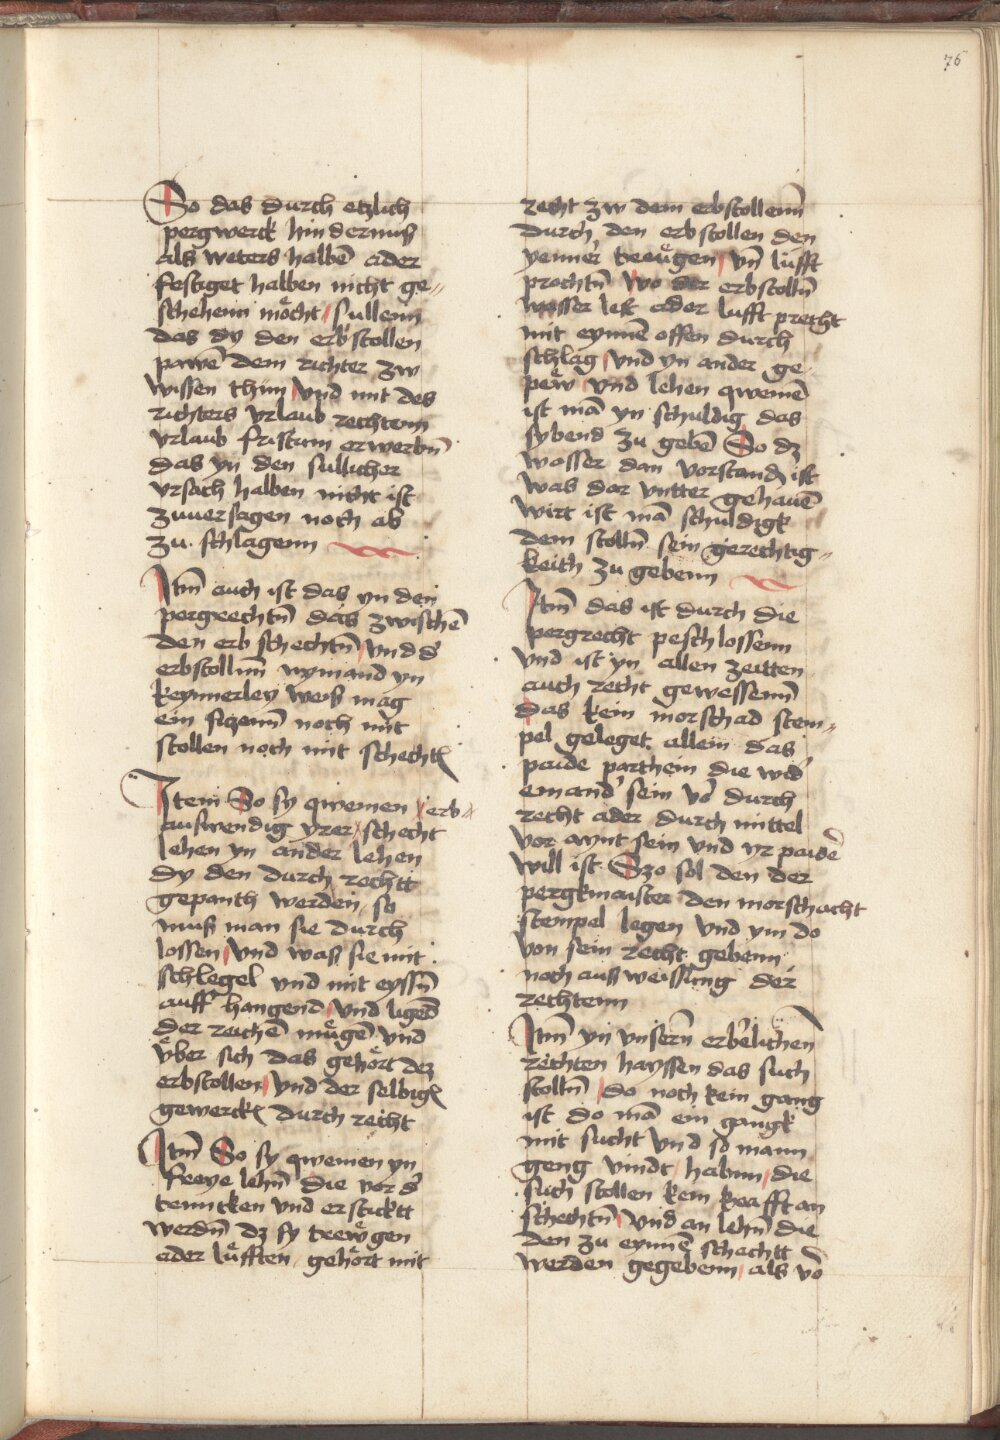 76
So das durch etzlich
pergwerck hindernuß
als weters halbē ader
festiget halben nicht ge„
schehenn mǒcht / sullenn
das dy den erbstollen
pawē dem richter zw
wissen thun / vnd mit des
richters vrlaub rechtenn
vrlaub fristum erwerbn̄
das yn den sullicher
vrsach halben nicht ist
zuuersagen noch ab
zu schlagenn
Itm̄ auch ist das yn den
pergrechtn̄ das zwischē
den erb schechtn̄ / vnd d'
erbstollnn̄ nymand yn
keynnerley weiß mag
ein sizenn̄ noch mit
stollen noch mit schecht
Item So sy qwemen / erb„
außwendig yrer / schecht
lehen yn ander lehen
dy den durch rechtt
gepauth werden / so
muß man sie durch
lossen / vnd was sie mit
schlegel vnd mit eyssn̄
auff hangend / vnd ligēd
der reichē mügē vnd
vber sich das gehört dez
erbstollen / vnd der selbig
gewerck durch recht
Itm̄ So sy qwemen yn
freye lehn̄ die vor d'
trunken vnd er stickt
werdn̄ dz sy trewgen
ader lüfften / gehört mit
recht zw dem erbstollenn̄
durch den erbstollen den
yenner treügen / vn̄ lüfft
prochtn̄ / wo der erbstolln̄
wasser lest ader lufft precht
mit eynnē offen durch
schlag / vnd yn ander ge„
pew / vnd lehen qwemē
ist mā yn schuldig das
sybend zu gebē So dz
wasser dan vorstand ist
was dar vntter gehauē
wirt ist mā schuldigk
dem stolln̄ sein gerechtig„
keith zu gebenn
Itm̄ das ist durch die
pergrecht peschlossenn
vnd ist yn allen zeitten
auch recht gewessenn̄
das kein morschad stem„
pel geleget allein das
paide parthein die wid'
emand' sein vo durch
recht ader durch mittel
vor aynt sein vnd yr paide
will ist Szo sol den der
pergkmaister den morschacht
stempel legen vnd ym do
von sein recht gebenn
noch außweissung der
rechtenn
Itm̄ yn vnsern̄ erberlichen
rechten hayssen das such
stolln̄ / do noch kein gang
ist do mā ein gangk
mit sucht vnd so mann
geng vindt / habnn / die
such stollen kein krafft an
schechtn̄ / vnd an lehn̄ die
den zu eynnē schachtt
werden gegebenn / als vō